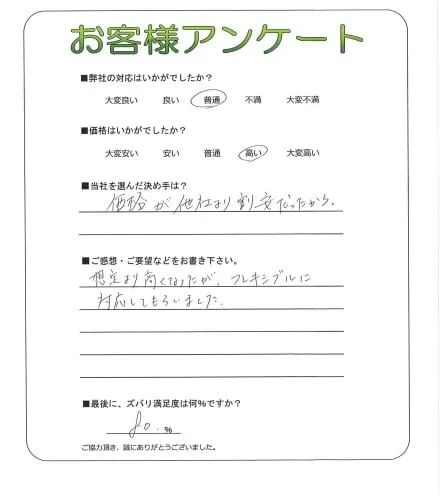 お客様アンケート
■弊社の対応はいかがでしたか?
大変良い 良い 普通 不満 大変不満
■価格はいかがでしたか?
大変安い 安い 普通 高い 大変高い
■当社を選んだ決め手は?
価格が他社より割安だったから.
■ご感想・ご要望などをお書き下さい。
想定より高くなったが、フレキシブルに
対応してもらいました.
■最後に、ズバリ満足度は何%ですか?
80.%
ご協力頂き、誠にありがとうございました。